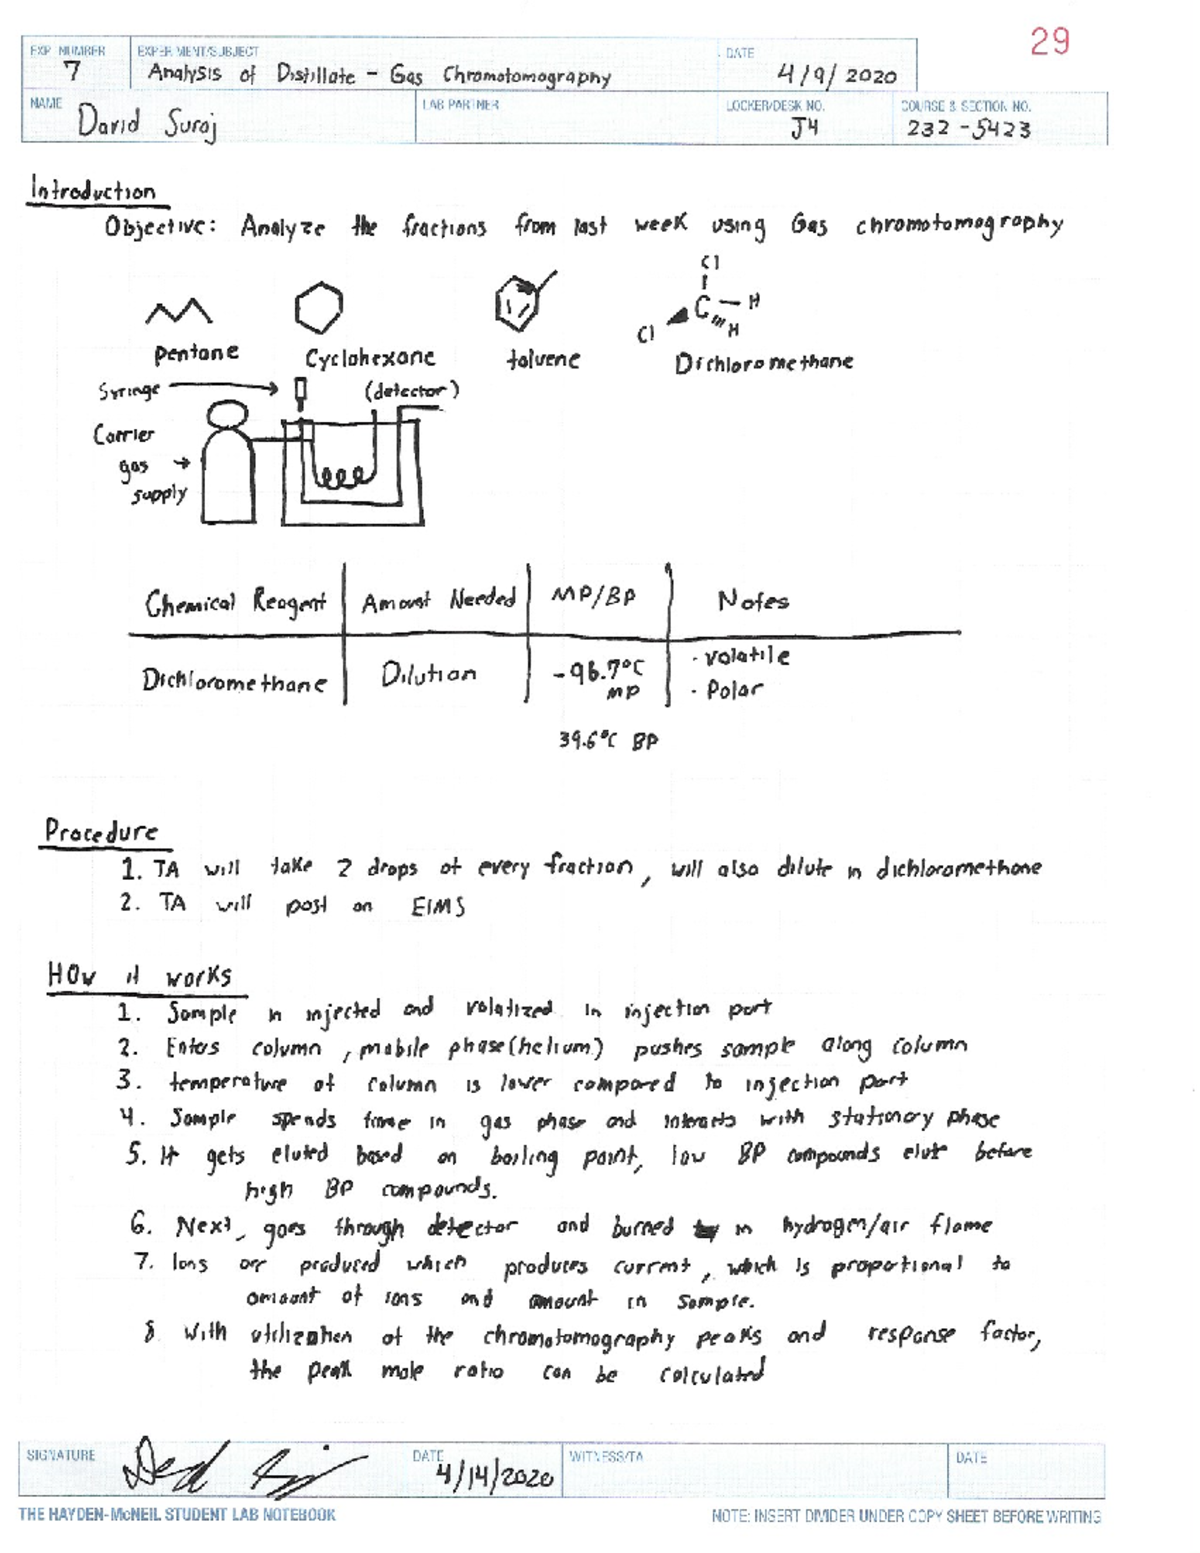 29
EXP NUMBER
7
EXPERIMENT/SUBJECT
Analysis of Distillate - Gas Chromotomography
DATE
4/9/2020
NAME
David Suraj
LAB PARTNER
LOCKER/DESK NO.
J4
COURSE & SECTION NO.
232-5423
Introduction
Objective: Analyze the fractions from last week using Gas chromotomography
Cl
C H
Cl H
pentane Cyclohexane toluene Dichloromethane
Syringe (detector)
Carrier
gas
supply
Chemical Reagent Amount Needed MP/BP Notes
Dichloromethane Dilution -96.7°C MP · volatile
· Polar
39.6°C BP
Procedure
1. TA will take 2 drops of every fraction, will also dilute in dichloromethane
2. TA will post on EIMS
How it works
1. Sample in injected and volatized in injection port
2. Enters column, mobile phase (helium) pushes sample along column
3. temperature of column is lower compared to injection port
4. Sample spends time in gas phase and interacts with stationary phase
5. It gets eluted based on boiling point, low BP compounds elute before
high BP compounds.
6. Next, goes through detector and burned in hydrogen/air flame
7. Ions are produced which produces current, which is proportional to
amount of ions and amount in sample.
8. With utilization of the chromotomography peaks and response factor,
the peak mole ratio can be calculated
SIGNATURE
DATE
4/14/2020
WITNESS/TA
DATE
THE HAYDEN-McNEIL STUDENT LAB NOTEBOOK
NOTE: INSERT DIVIDER UNDER COPY SHEET BEFORE WRITING